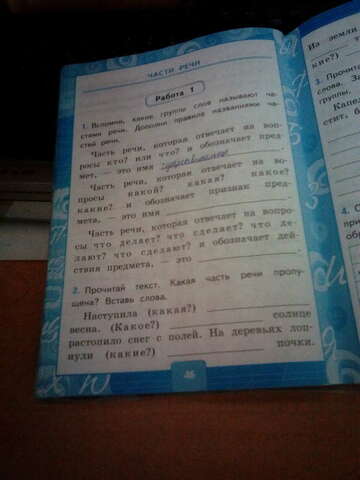 ЧАСТИ РЕЧИ
Работа 1
1. Вспомни, какие группы слов называют ча-
стями речи. Дополни правила названиями ча-
стей речи.
Часть речи, которая отвечает на воп-
росы кто? или что? и обозначает пред-
мет, — это имя существительное.
Часть речи, которая отвечает на во-
просы какой? какая? какое?
какие? и обозначает признак пред-
мета, — это имя
Часть речи, которая отвечает на вопро-
сы что делает? что сделает? что де-
лают? что сделают? и обозначает дей-
ствия предмета, — это
2. Прочитай текст. Какая часть речи пропу-
щена? Вставь слова.
Наступила (какая?)
весна. (Какое?) солнце
растопило снег с полей. На деревьях лоп-
нули (какие?) почки.
На земли
кие?)
3. Прочита
слова. За
группы.
Капел
стит, б
4.